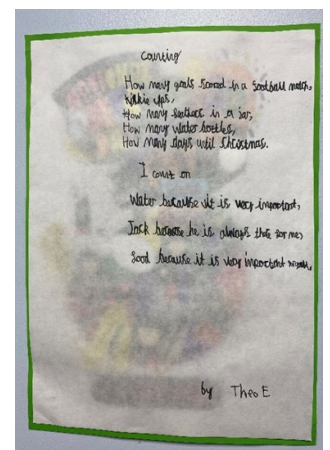 Counting
How many goals scored in a football match,
kickie ups,
How many feathers in a jar,
How many water bottles,
How many days until Christmas.
I count on
Water because it is very important,
Jack because he is always there for me,
Food because it is very important
by Theo E